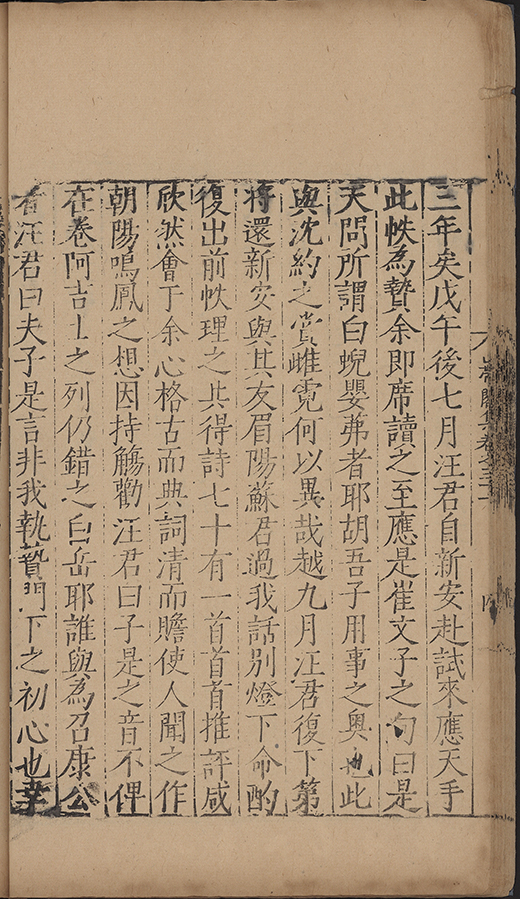 三年矣戊午後七月汪君自新安赴試來應天手
此帙為贄余即席讀之至應是崔文子之句曰是
天問所謂白蜺嬰茀者耶胡吾子用事之奧也此
與沈約之賞雌霓何以異哉越九月汪君復下第
將還新安與其友眉陽蘇君過我話別燈下命酌
復出前帙理之共得詩七十有一首首首推評咸
欣然會于余心格古而典詞清而贍使人聞之作
朝陽鳴鳳之想因持觴勸汪君曰子是之音不俾
在卷阿吉士之列仍錯之白岳耶誰與為召康公
者汪君曰夫子是言非我執贄門下之初心也幸